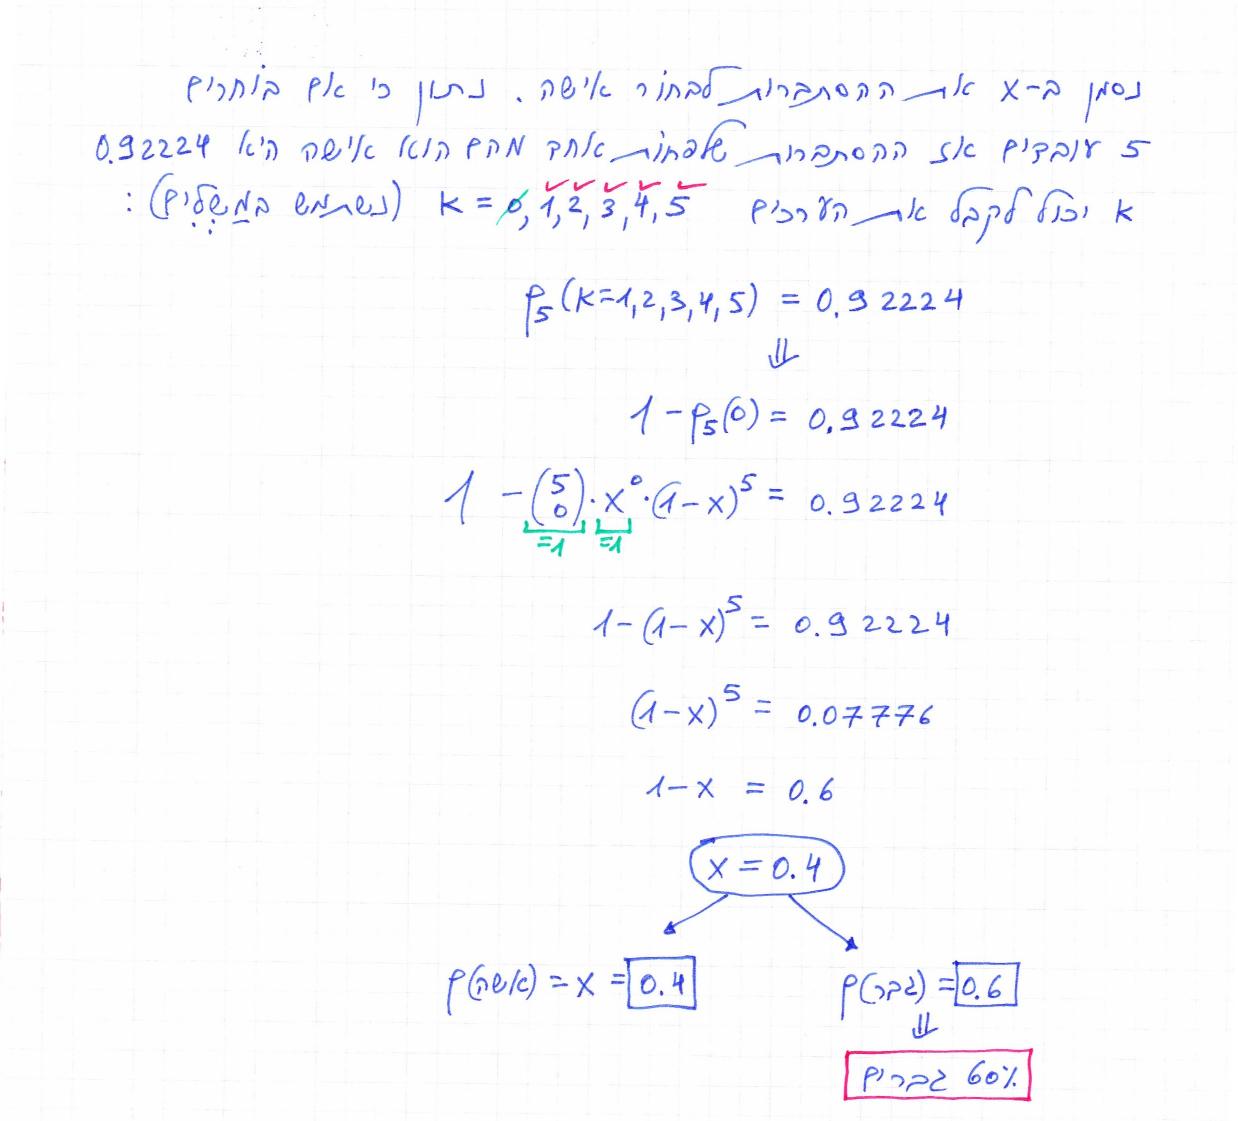 נסמן ב-x את ההסתברות לבחור אישה. נתון כי אם בוחרים
5 עובדים אז ההסתברות שלפחות אחד מהם הוא אישה היא 0.92224
k יכול לקבל את הערכים k = 0, 1, 2, 3, 4, 5 (נשתמש במַשְׁלִים):
P₅(k=1,2,3,4,5) = 0.92224
⇓
1 - P₅(0) = 0.92224
1 - (5 0) · x⁰ · (1-x)⁵ = 0.92224
=1 =1
1 - (1-x)⁵ = 0.92224
(1-x)⁵ = 0.07776
1-x = 0.6
x = 0.4
P(אשה) = x = 0.4 P(גבר) = 0.6
⇓
60% גברים